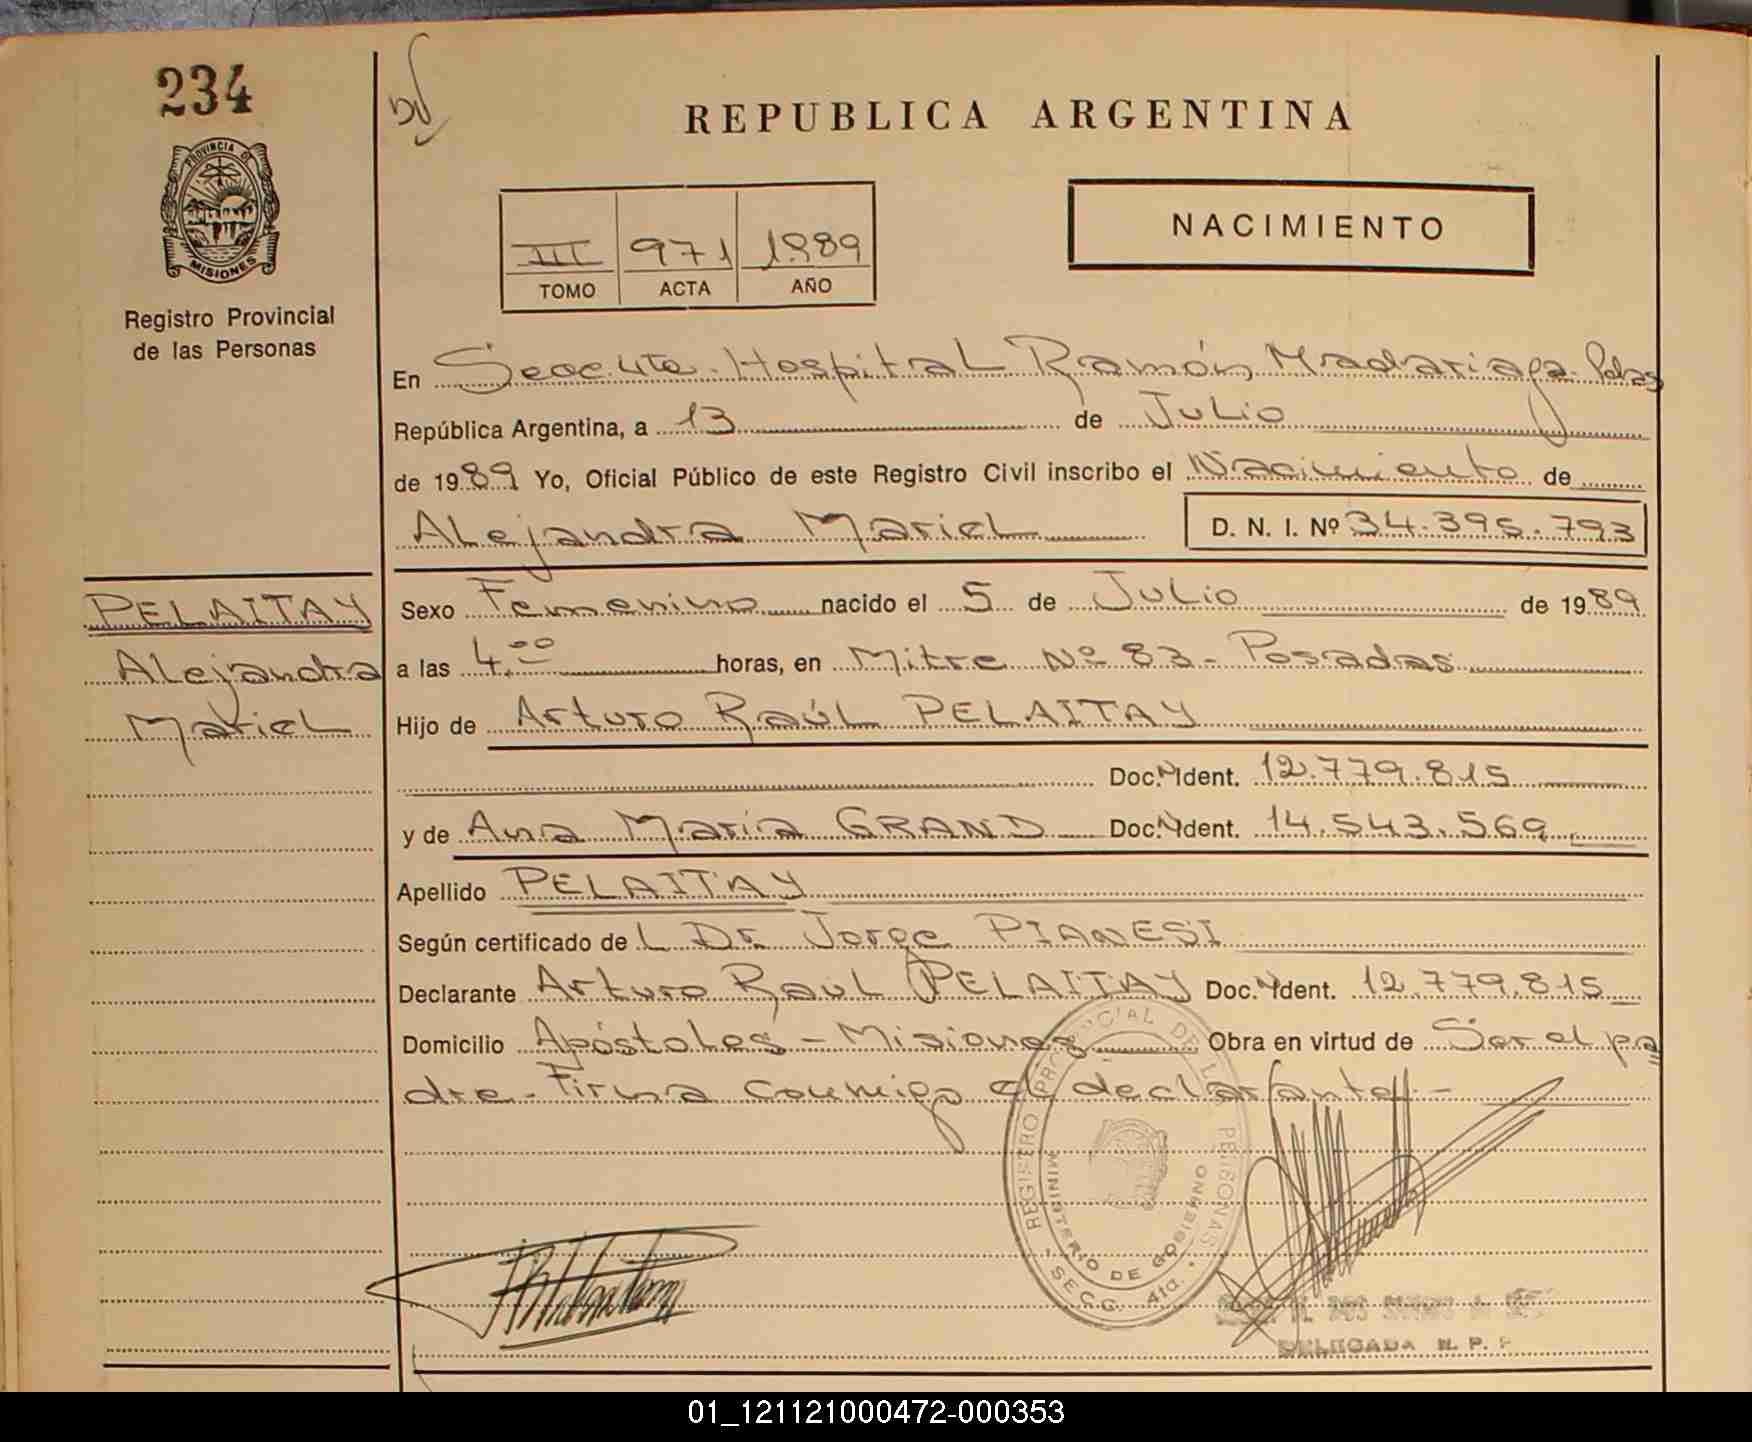 234
PROVINCIA DE
MISIONES
Registro Provincial
de las Personas
REPUBLICA ARGENTINA
III 971 1989
TOMO ACTA AÑO
NACIMIENTO
En Secc. 4ta. Hospital Ramón Madariaga. Pdas
República Argentina, a 13 de Julio
de 1989 Yo, Oficial Público de este Registro Civil inscribo el Nacimiento de
Alejandra Mariel D. N. I. Nº 34.395.793
PELAITAY
Alejandra
Mariel
Sexo Femenino nacido el 5 de Julio de 1989
a las 4.00 horas, en Mitre Nº 83 - Posadas
Hijo de Arturo Raúl PELAITAY
Doc. N Ident. 12.779.815
y de Ana María GRAND Doc. N Ident. 14.543.569
Apellido PELAITAY
Según certificado del Dr. Jorge PIANESI
Declarante Arturo Raúl PELAITAY Doc. N Ident. 12.779.815
Domicilio Apóstoles - Misiones Obra en virtud de Ser el pa
dre. Firma conmigo el declarante -
REGISTRO PROVINCIAL DE LAS PERSONAS
MINISTERIO DE GOBIERNO
SECC. 4ta.
DELEGADA R. P. P.
01_121121000472-000353